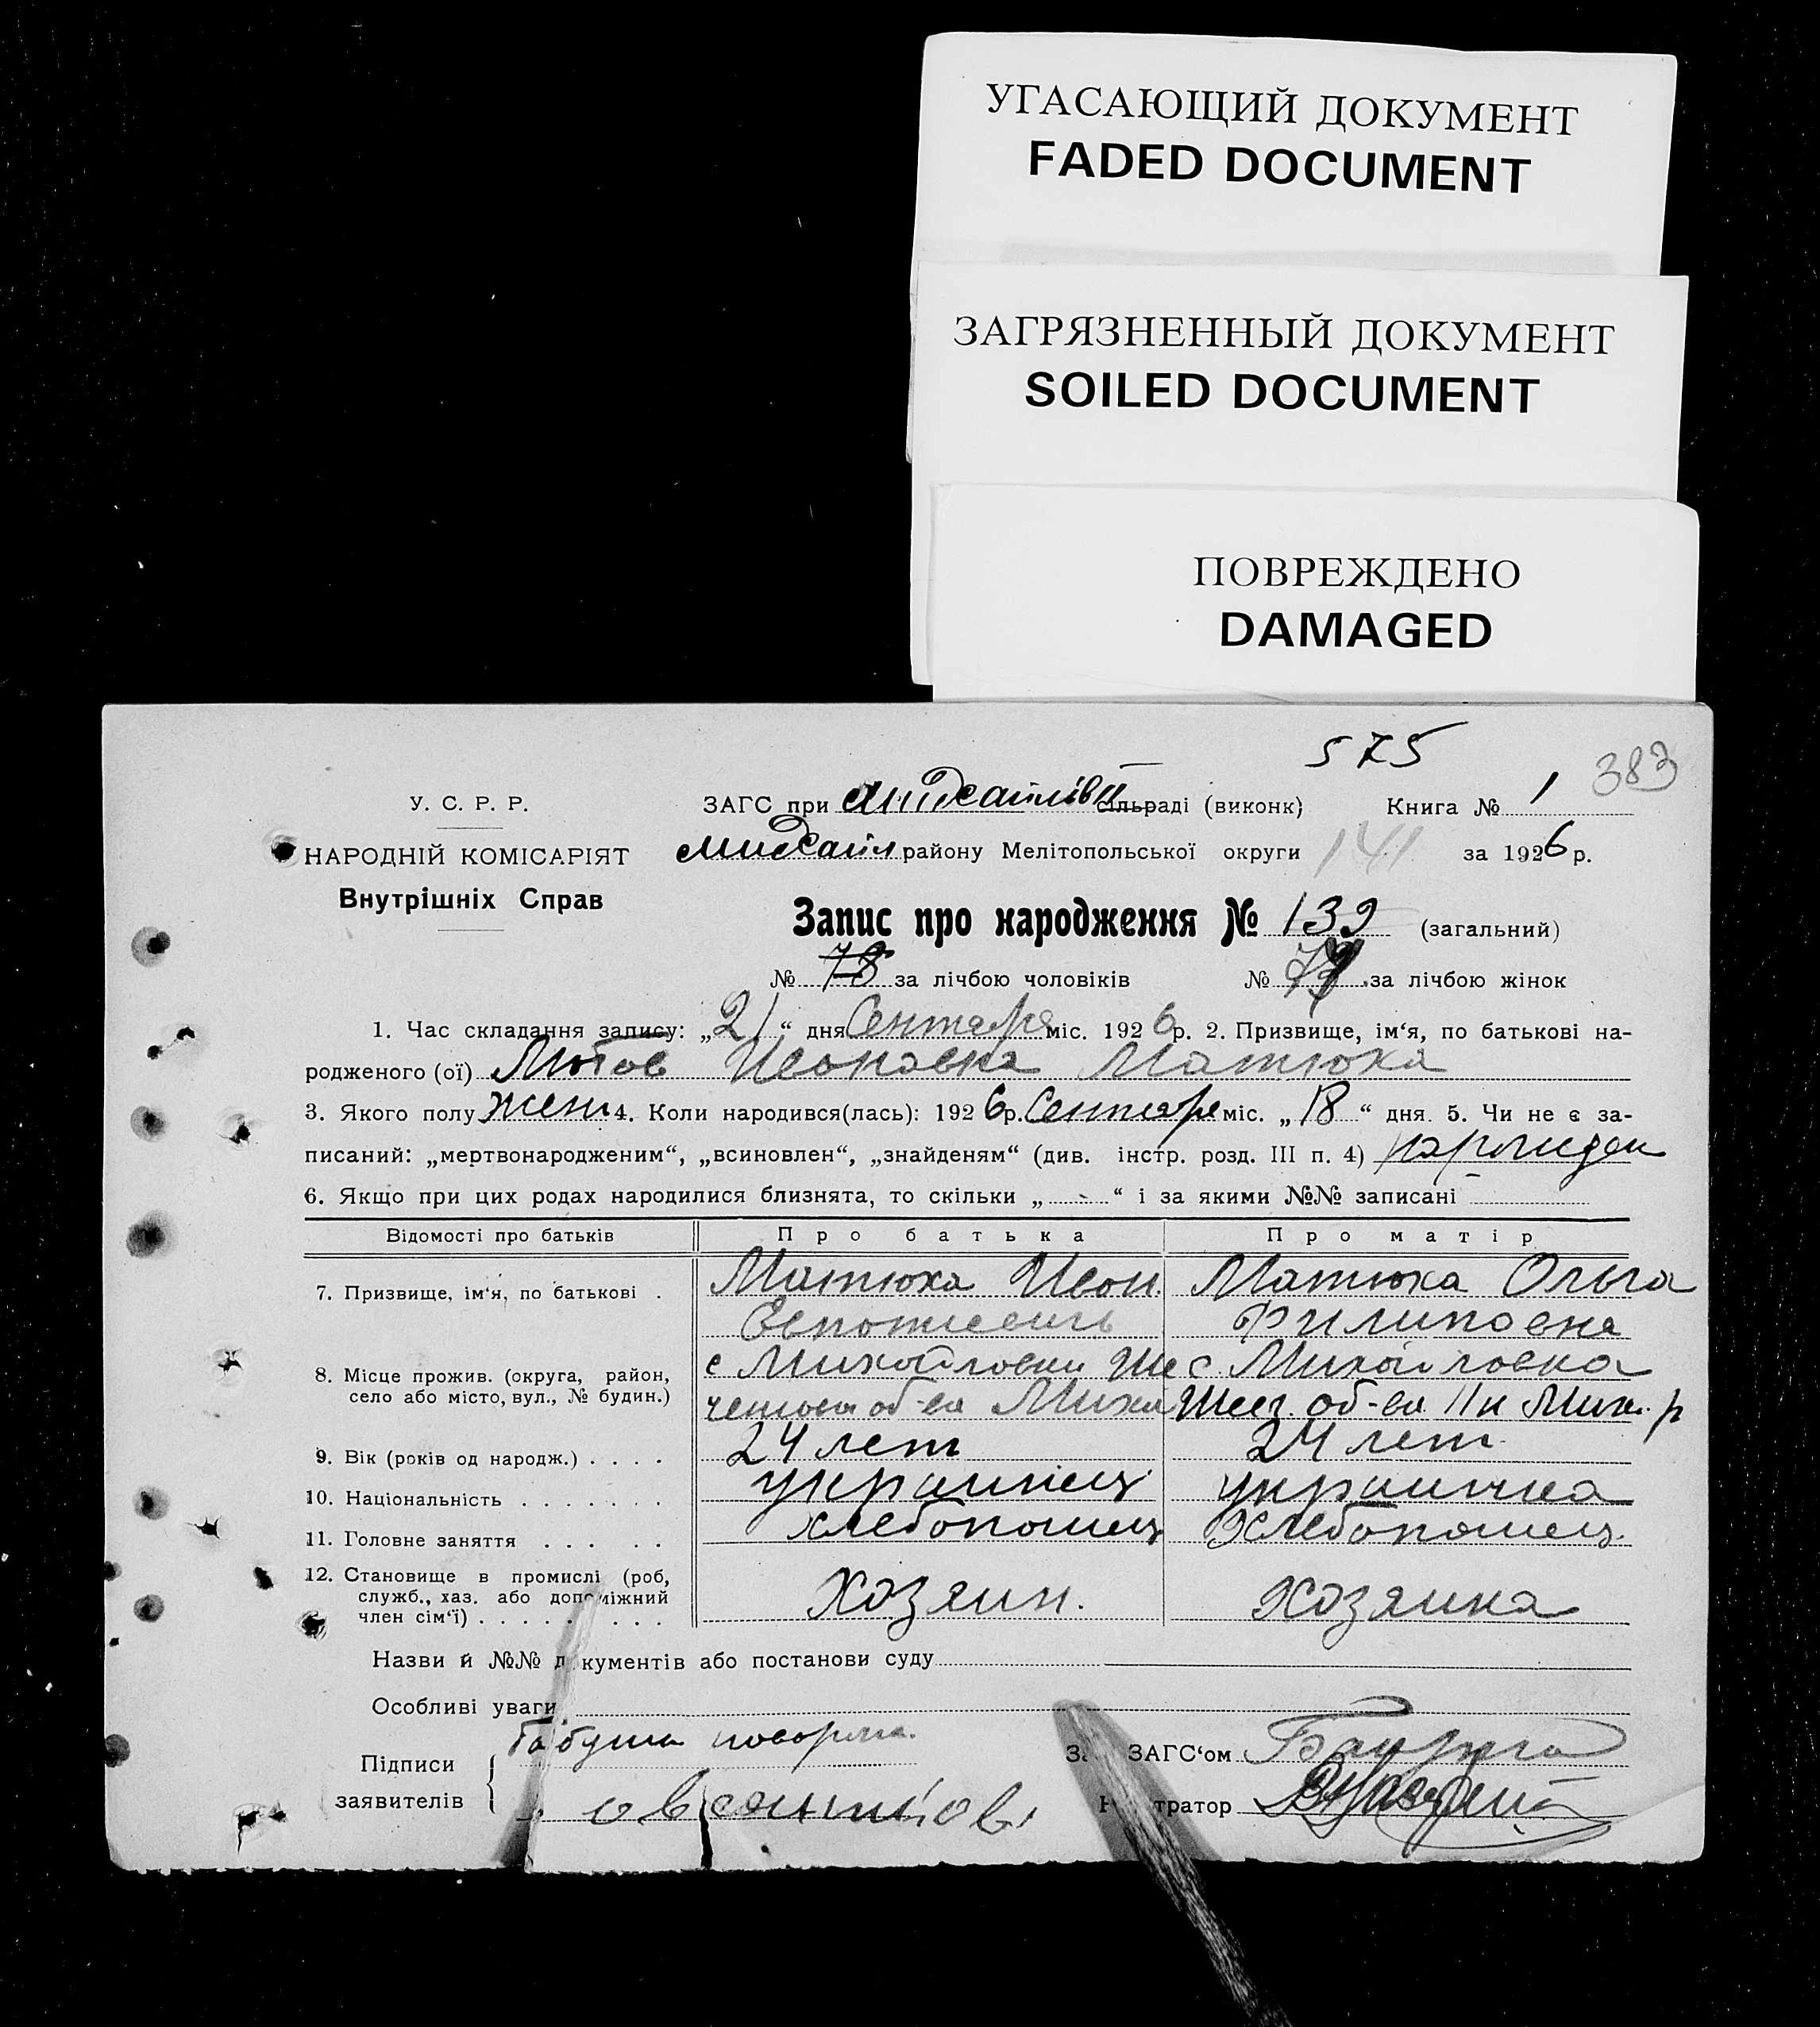 УГАСАЮЩИЙ ДОКУМЕНТ
FADED DOCUMENT
ЗАГРЯЗНЕННЫЙ ДОКУМЕНТ
SOILED DOCUMENT
ПОВРЕЖДЕНО
DAMAGED
575
383
У. С. Р. Р.
ЗАГС при сільраді (виконк) Книга № 1
НАРОДНІЙ КОМІСАРІЯТ
Михайл району Мелітопольської округи 141 за 1926 р.
Внутрішніх Справ
Запис про народження № 139 (загальний)
№ 78 за лічбою чоловіків № за лічбою жінок
1. Час складання запису: „21“ дня Сентября міс. 1926 р. 2. Призвище, ім‘я, по батькові на-
родженого (ої) Ивановна Матюха
3. Якого полу жен 4. Коли народився(лась): 1926 р. Сентября міс. „18“ дня. 5. Чи не є за-
писаний: „мертвонародженим“, „всиновлен“, „знайденям“ (див. інстр. розд. III п. 4)
6. Якщо при цих родах народилися близнята, то скільки „ - “ і за якими №№ записані
Відомості про батьків Про батька Про матір
7. Призвище, ім‘я, по батькові . Матюха Иван. Матюха Ольга
Филиповна
8. Місце прожив. (округа, район, село або місто, вул., № будин.) с Михайловки с Михайловка
об-ва Миха об-ва Мих. р
9. Вік (років од народж.) . . . . 24 лет 24 лет
10. Національність . . . . . . . украинец украинка
11. Головне заняття . . . . . хлебопашец Хлебопашец.
12. Становище в промислі (роб, служб., хаз. або допоміжний член сім‘ї) . . . . . . . . Хозяин. Хозяика
Назви й №№ документів або постанови суду
Особливі уваги
Підписи заявителів
ЗАГС‘ом
тратор